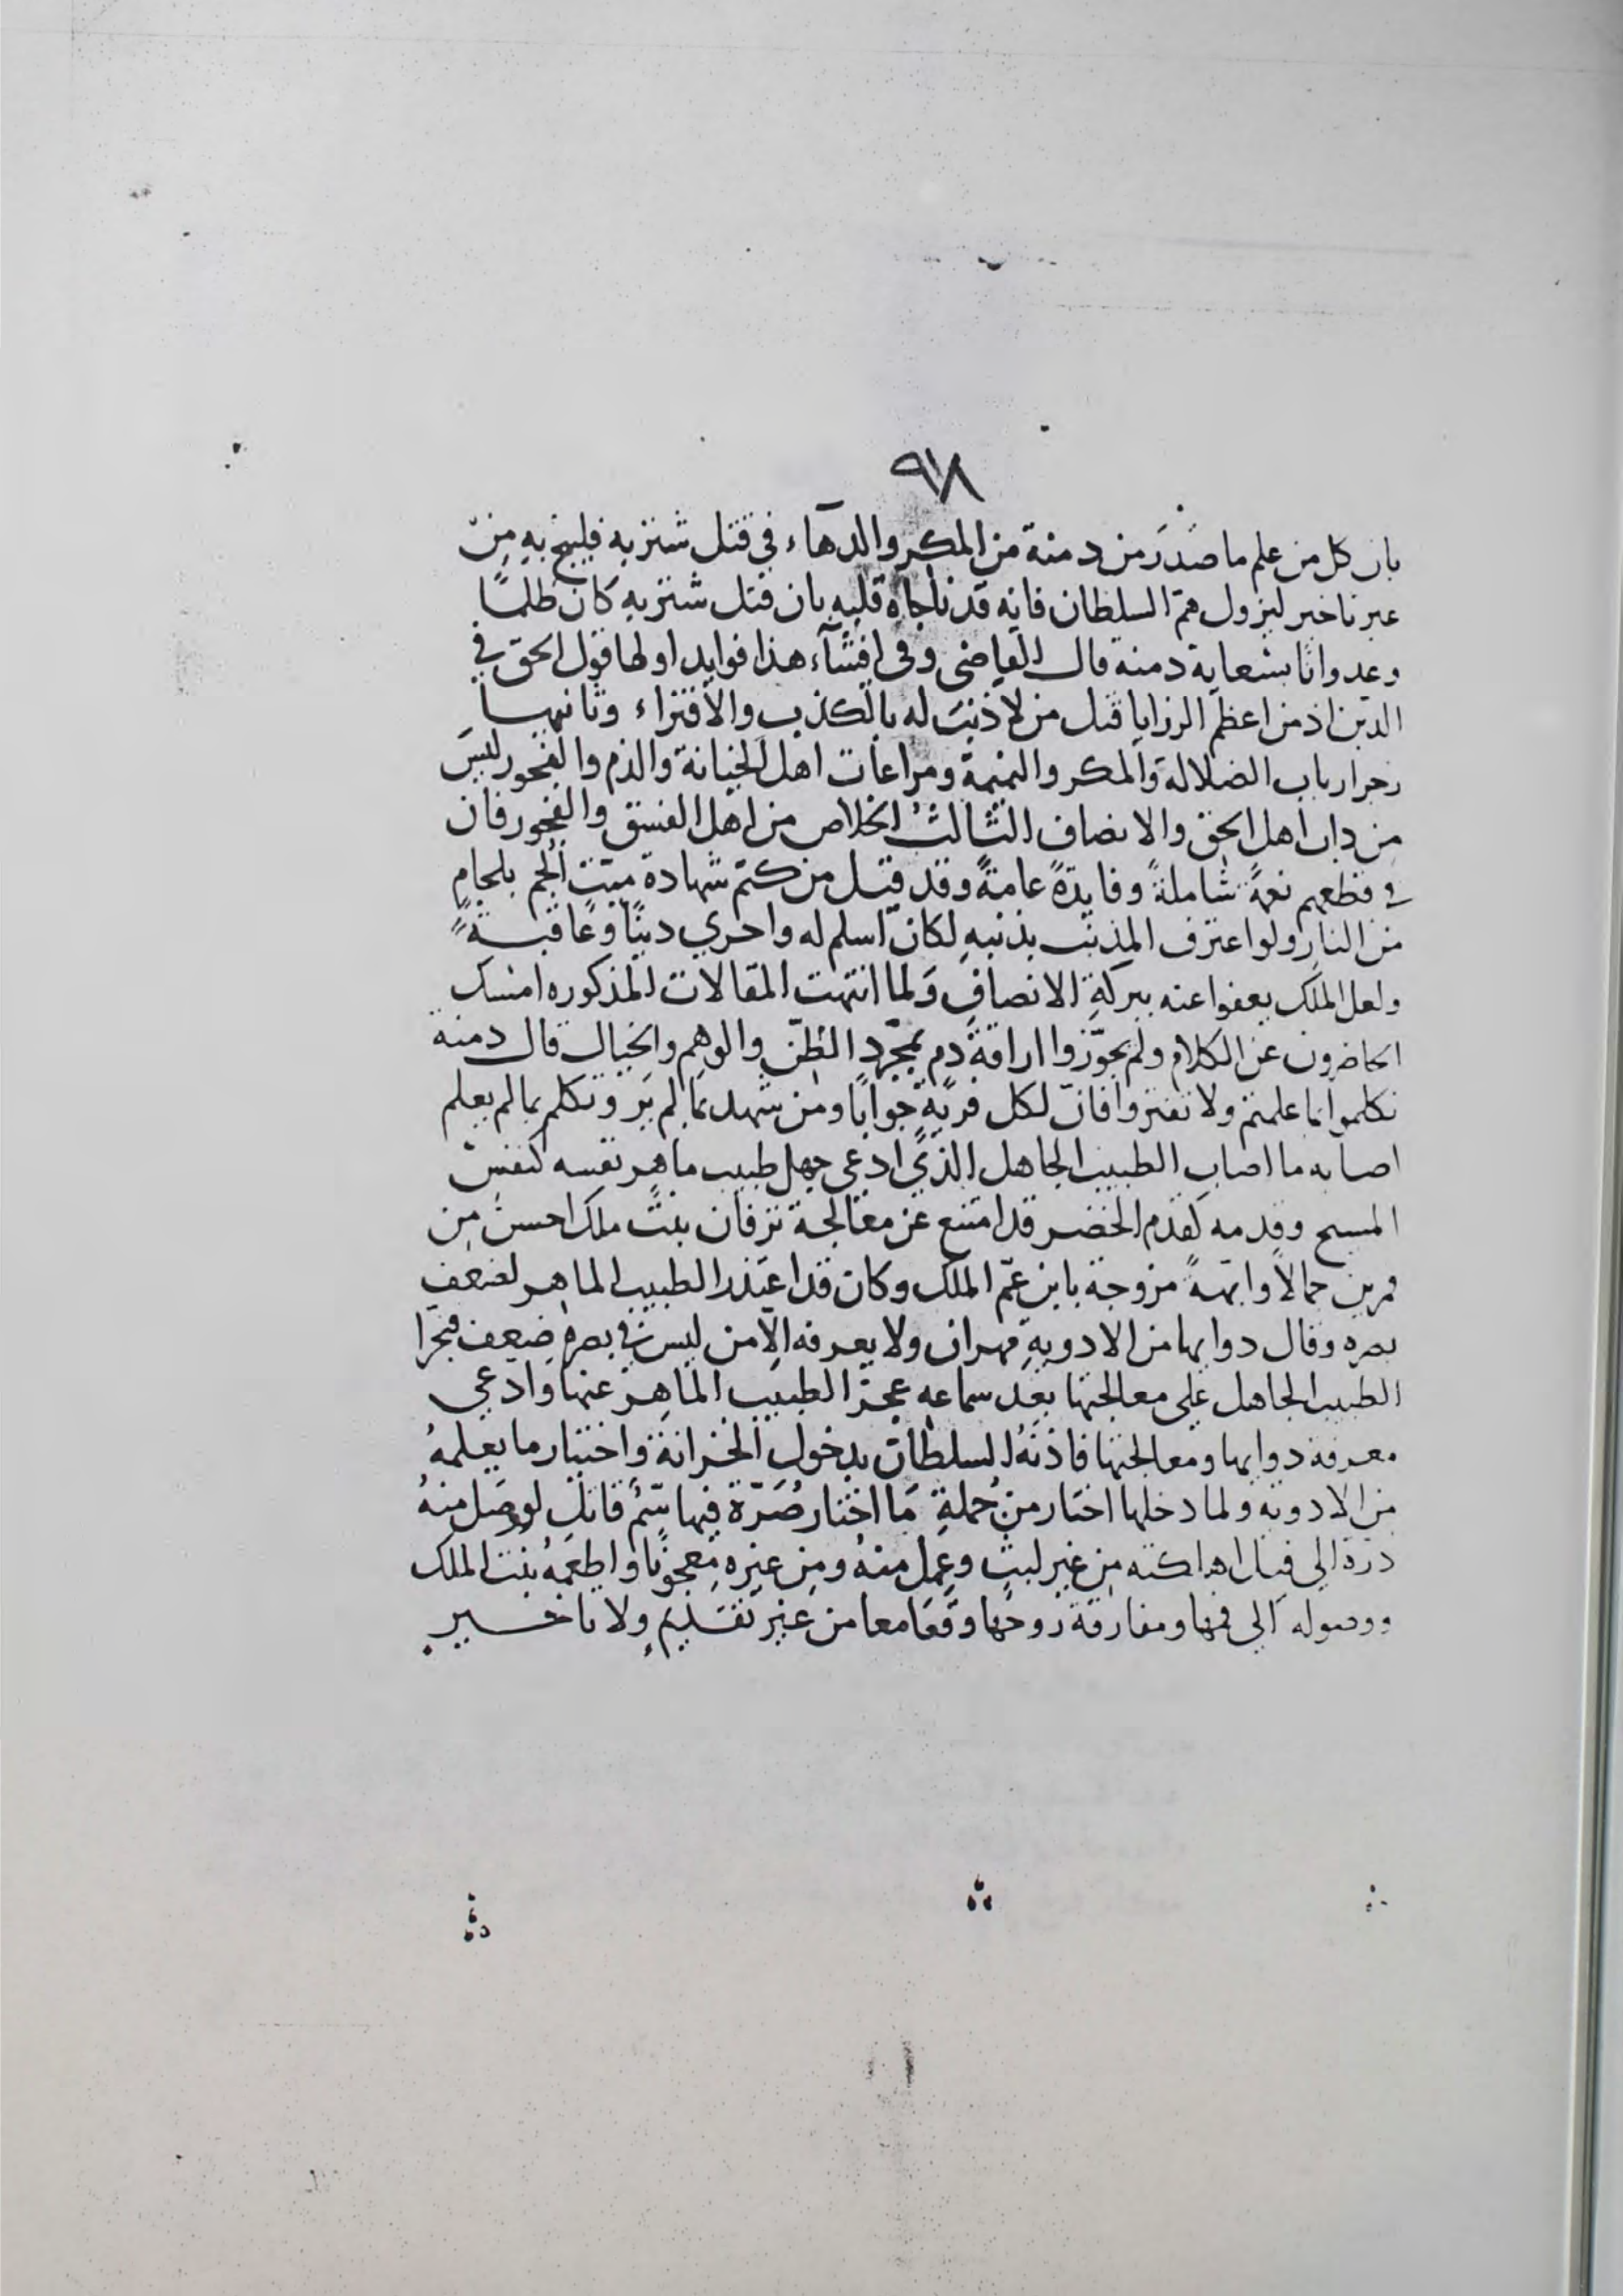 ٩٧٨
بان كل من علم ما صَدَرَ من دمنة من المكر والدهآء في قتل شنزبه فليبح به مِنْ
غير تاخير ليزول همّ السلطان فانه قد ناجاه قلبه بان قتل شنزبه كان ظلمًا
وعدوانا بسعاية دمنة قال القاضى وفى افشآء هذا فوايد اولها قول الحق في
الدين اذ من اعظم الرزايا قتل من لا ذنبَ له بالكذب والافتراء وثانيها
زجر ارباب الضلالة والمكر والنميمة ومراعات اهل الخيانة والذم والفجور ليسَ
من داب اهل الحق والانصاف الثالثُ الخلاص من اهل الفسق والفجور فان
في قطعهم نعمةً شاملةً وفايدةً عامةً وقد قيل من كتم شهادة ميّتٍ اُلجم بلجامٍ
من النار ولو اعترف المذنب بذنبهِ لكان اسلم له واحري دينًا وعاقبةً
ولعل الملك يعفوا عنه ببركةِ الانصافِ ولما انتهت المقالات المذكوره امسك
الحاضرون عن الكلام ولم يجوّزوا اراقة دم بمجرّد الظنّ والوهم والخيال قال دمنة
تكلموا بما علمتم ولا تفتروا فانّ لكل فريةٍ جوابًا ومن شهد بما لم يَر وتكلم بما لم يعلم
اصابه ما اصاب الطبيب الجاهل الذي ادعى جهل طبيب ماهر نفسه كنفسْ
المسيح وقدمه كقدم الخضر قد امتنع عن معالجة نزفان بنت ملك احسن مِن
قمرين جمالاً وابهةً مزوجة بابن عمّ الملك وكان قد اعتذر الطبيب الماهر لضعف
بصره وقال دوايها من الادويةِ مهران ولا يعرفه الا من ليس في بصرهِ ضعف فتجرا
الطبيب الجاهل على معالجتها بعد سماعه عجز الطبيب الماهر عنها وادعي
معرفة دوايها ومعالجتها فاذنهُ السلطان بدخول الخزانة واختيار ما يعلمهُ
من الادوية ولما دخلها اختار من جُملةِ مَا اختار صُرّة فيها سّمُ قاتل لو وصَل منهُ
ذرة الي فيل اهلكته من غير لبثٍ وعمل منهُ ومن غيره معجونًا واطعمهُ بنت الملك
ووصوله الي فمها ومفارقة روحها وقعَا معا من غير تقديمٍ ولا تاخيرٍ